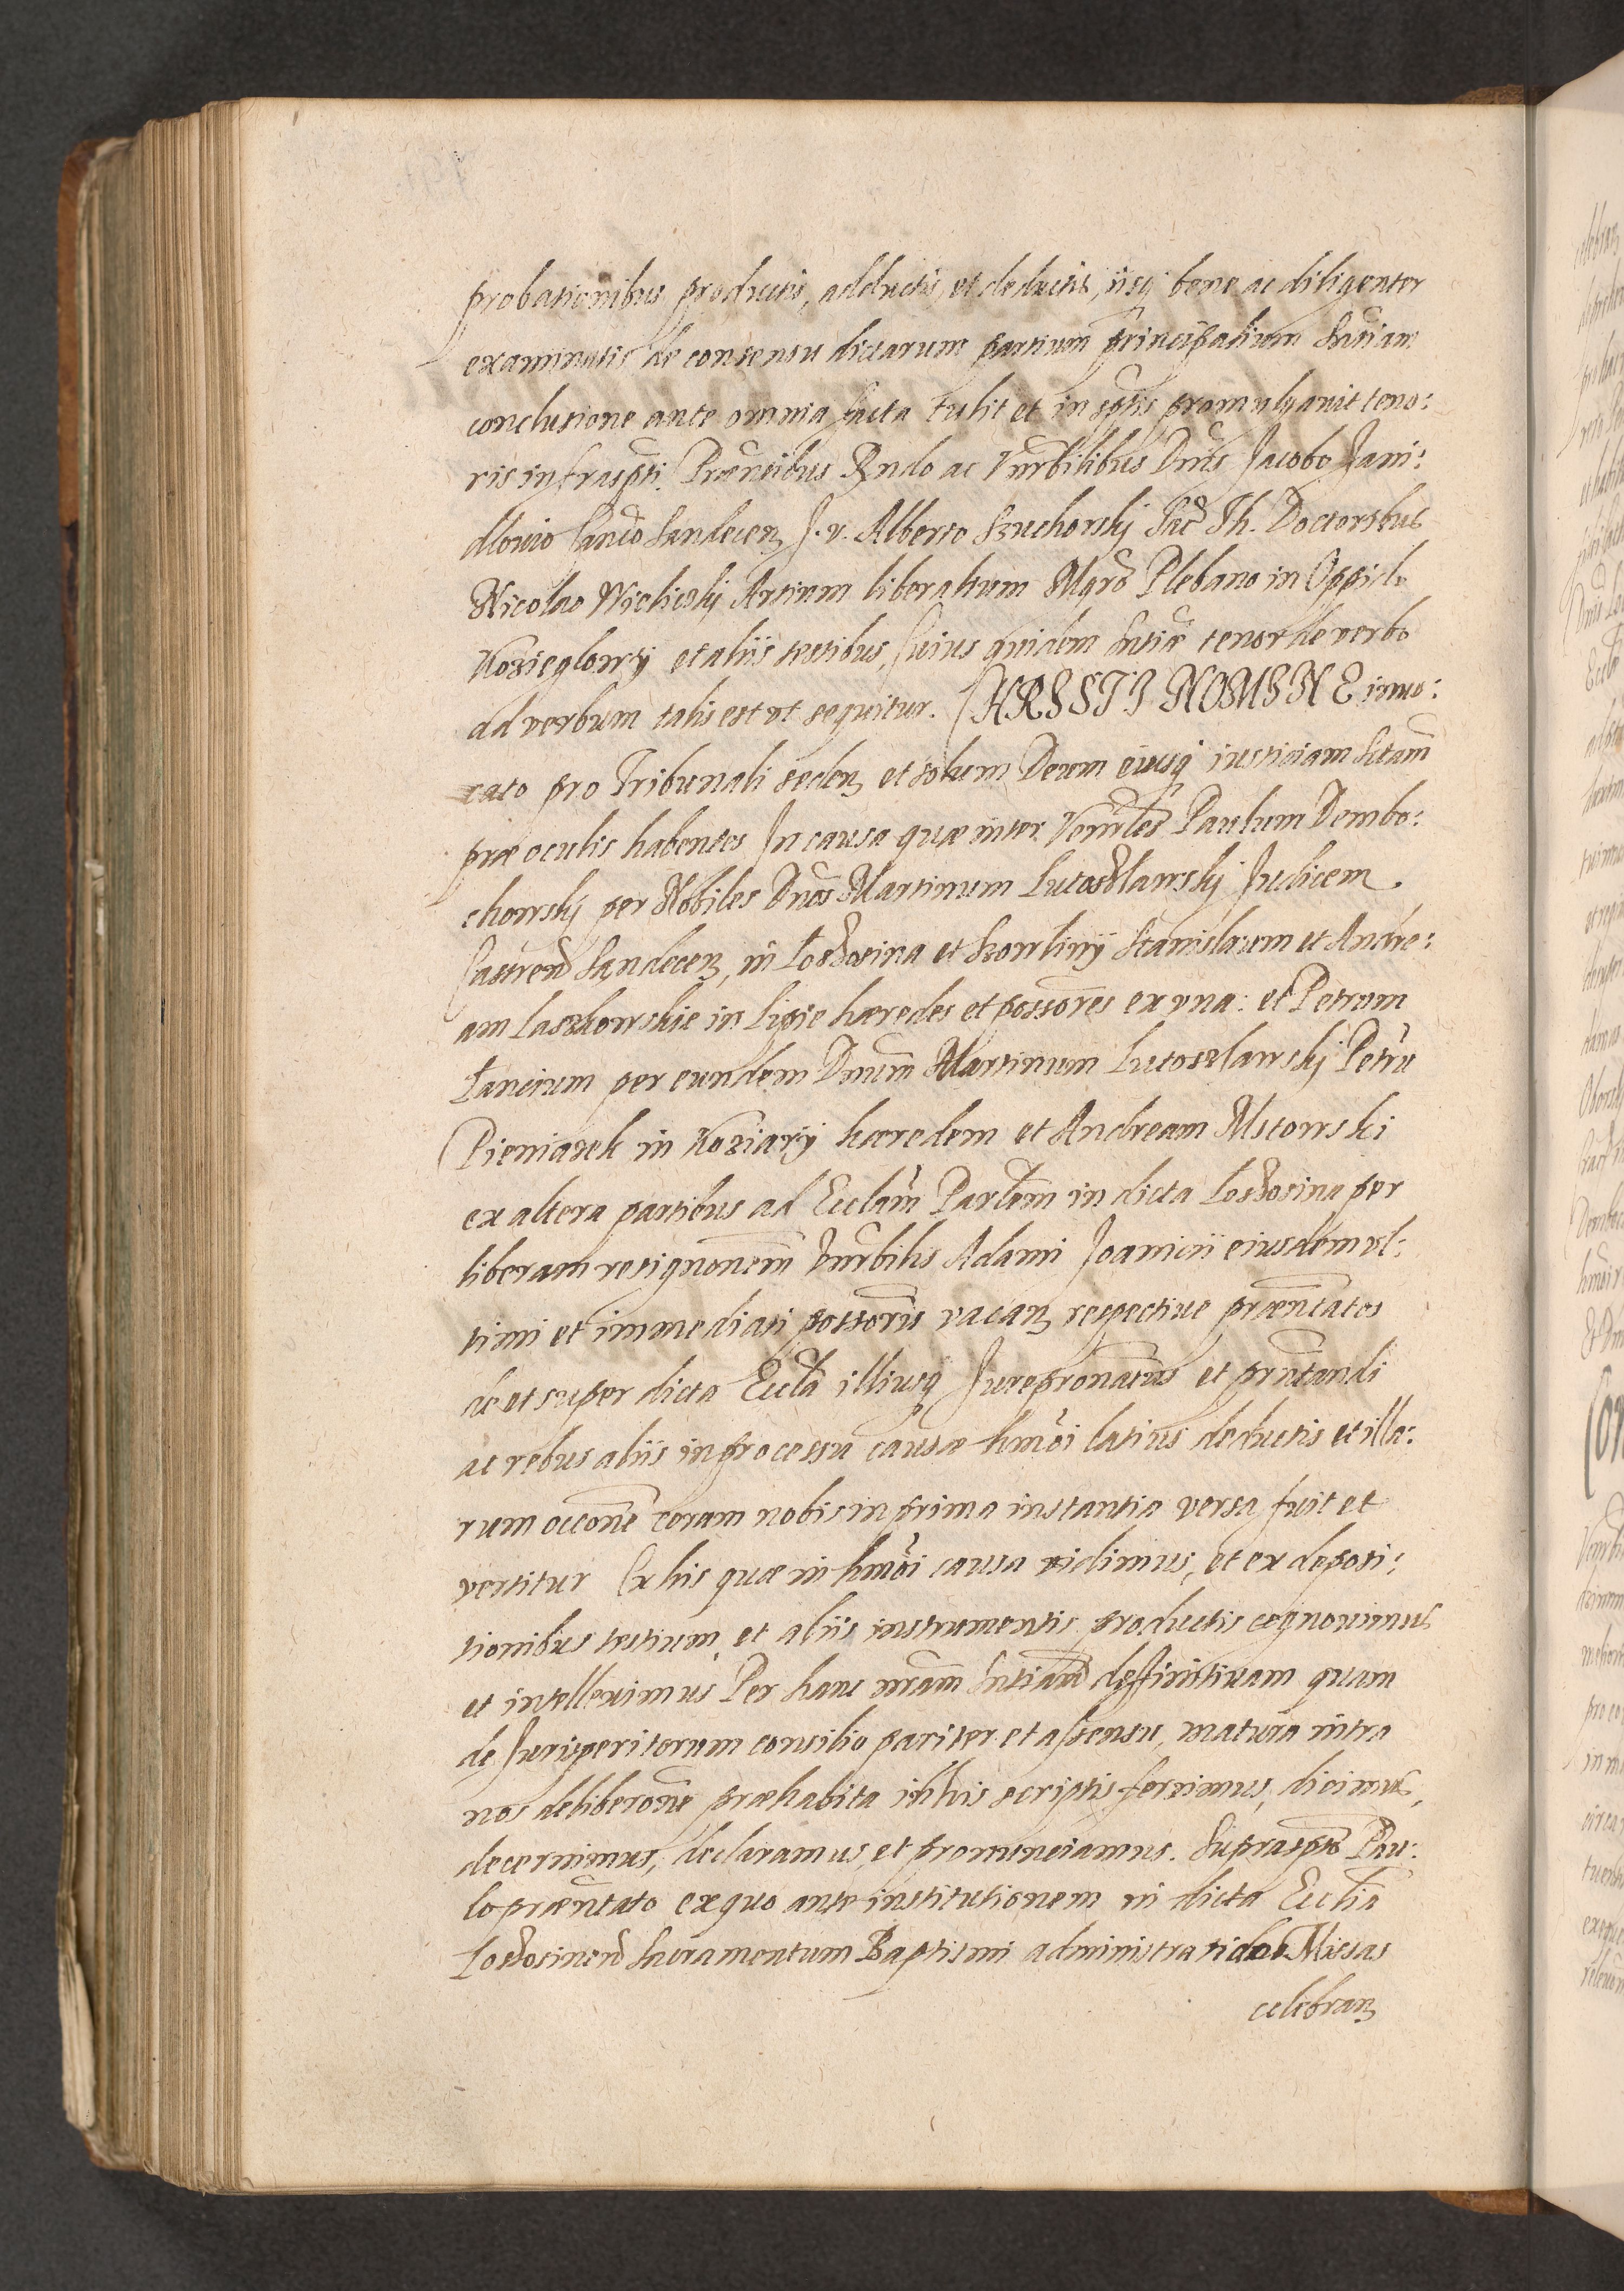 probationibus productis, adductis, et deductis, iisq bene ac diligenter
examinatis de consensu dictarum partium principalium Sntiam
conclusione ante omnia facta tulit et in sptis promulgauit teno:
ris infraspti. Pntibus Rndo ac Vnrbilibus Dnis Jacobo Jani:
dlouio Canco Sandecen J. v. Alberto Szuchorskj Sac Th. Doctoribus
Nicolao Wieliczkj Artium liberalium Mgro Plebano in Oppido
Kozieglowy et aliis testibus, Cuius quidem Sntiæ tenor de verbo
ad verbum talis est vt sequitur. CHRISTI NOMINE inuo:
cato pro Tribunali seden et solum Deum eiusq iusticiam Sctam
præ oculis habentes In causa quæ inter Venrles Paulum Dembo:
chowskj per Nobiles Dnos Martinum Lutoslawskj Judicem
Castren Sandecen, in Lososina et Szowliny Stanislaum et Andre:
am Laszkowskie in Lipie hæredes et possores ex vna: et Petrum
Lancium per eundem Dnum Martinum Lutoslawskj Petru
Pieniazek in Koziary hæredem et Andream Mstowski
ex altera partibus ad Ecclam Parlem in dicta Lososina per
liberam resignonem Vnrbilis Adami Joanicii eiusdem vl:
timi et immediati possoris vacan respectiue præntatos
de et super dicta Eccla illiusq Jurepronatus et prntandi
ac rebus aliis in processu causæ hmoi latius deductis et illa:
rum occone coram nobis in prima instantia versa fuit et
vertitur Ex his quæ in hmoi causa vidimus, et ex deposi:
tionibus testium, et aliis instrumentis productis cognouimus
et intelleximus Per hanc nram Sntiam deffinitiuam quam
de Jurisperitorum consilio pariter et assensu, matura intra
nos deliberone præhabita in his scriptis ferimus, dicimus,
decernimus, declaramus, et pronunciamus. Supraspto Pau:
lo præntato ex quo ante institutionem in dicta Ecclia
Lososinen Sacramentum Baptismi administrati Missas
celebran